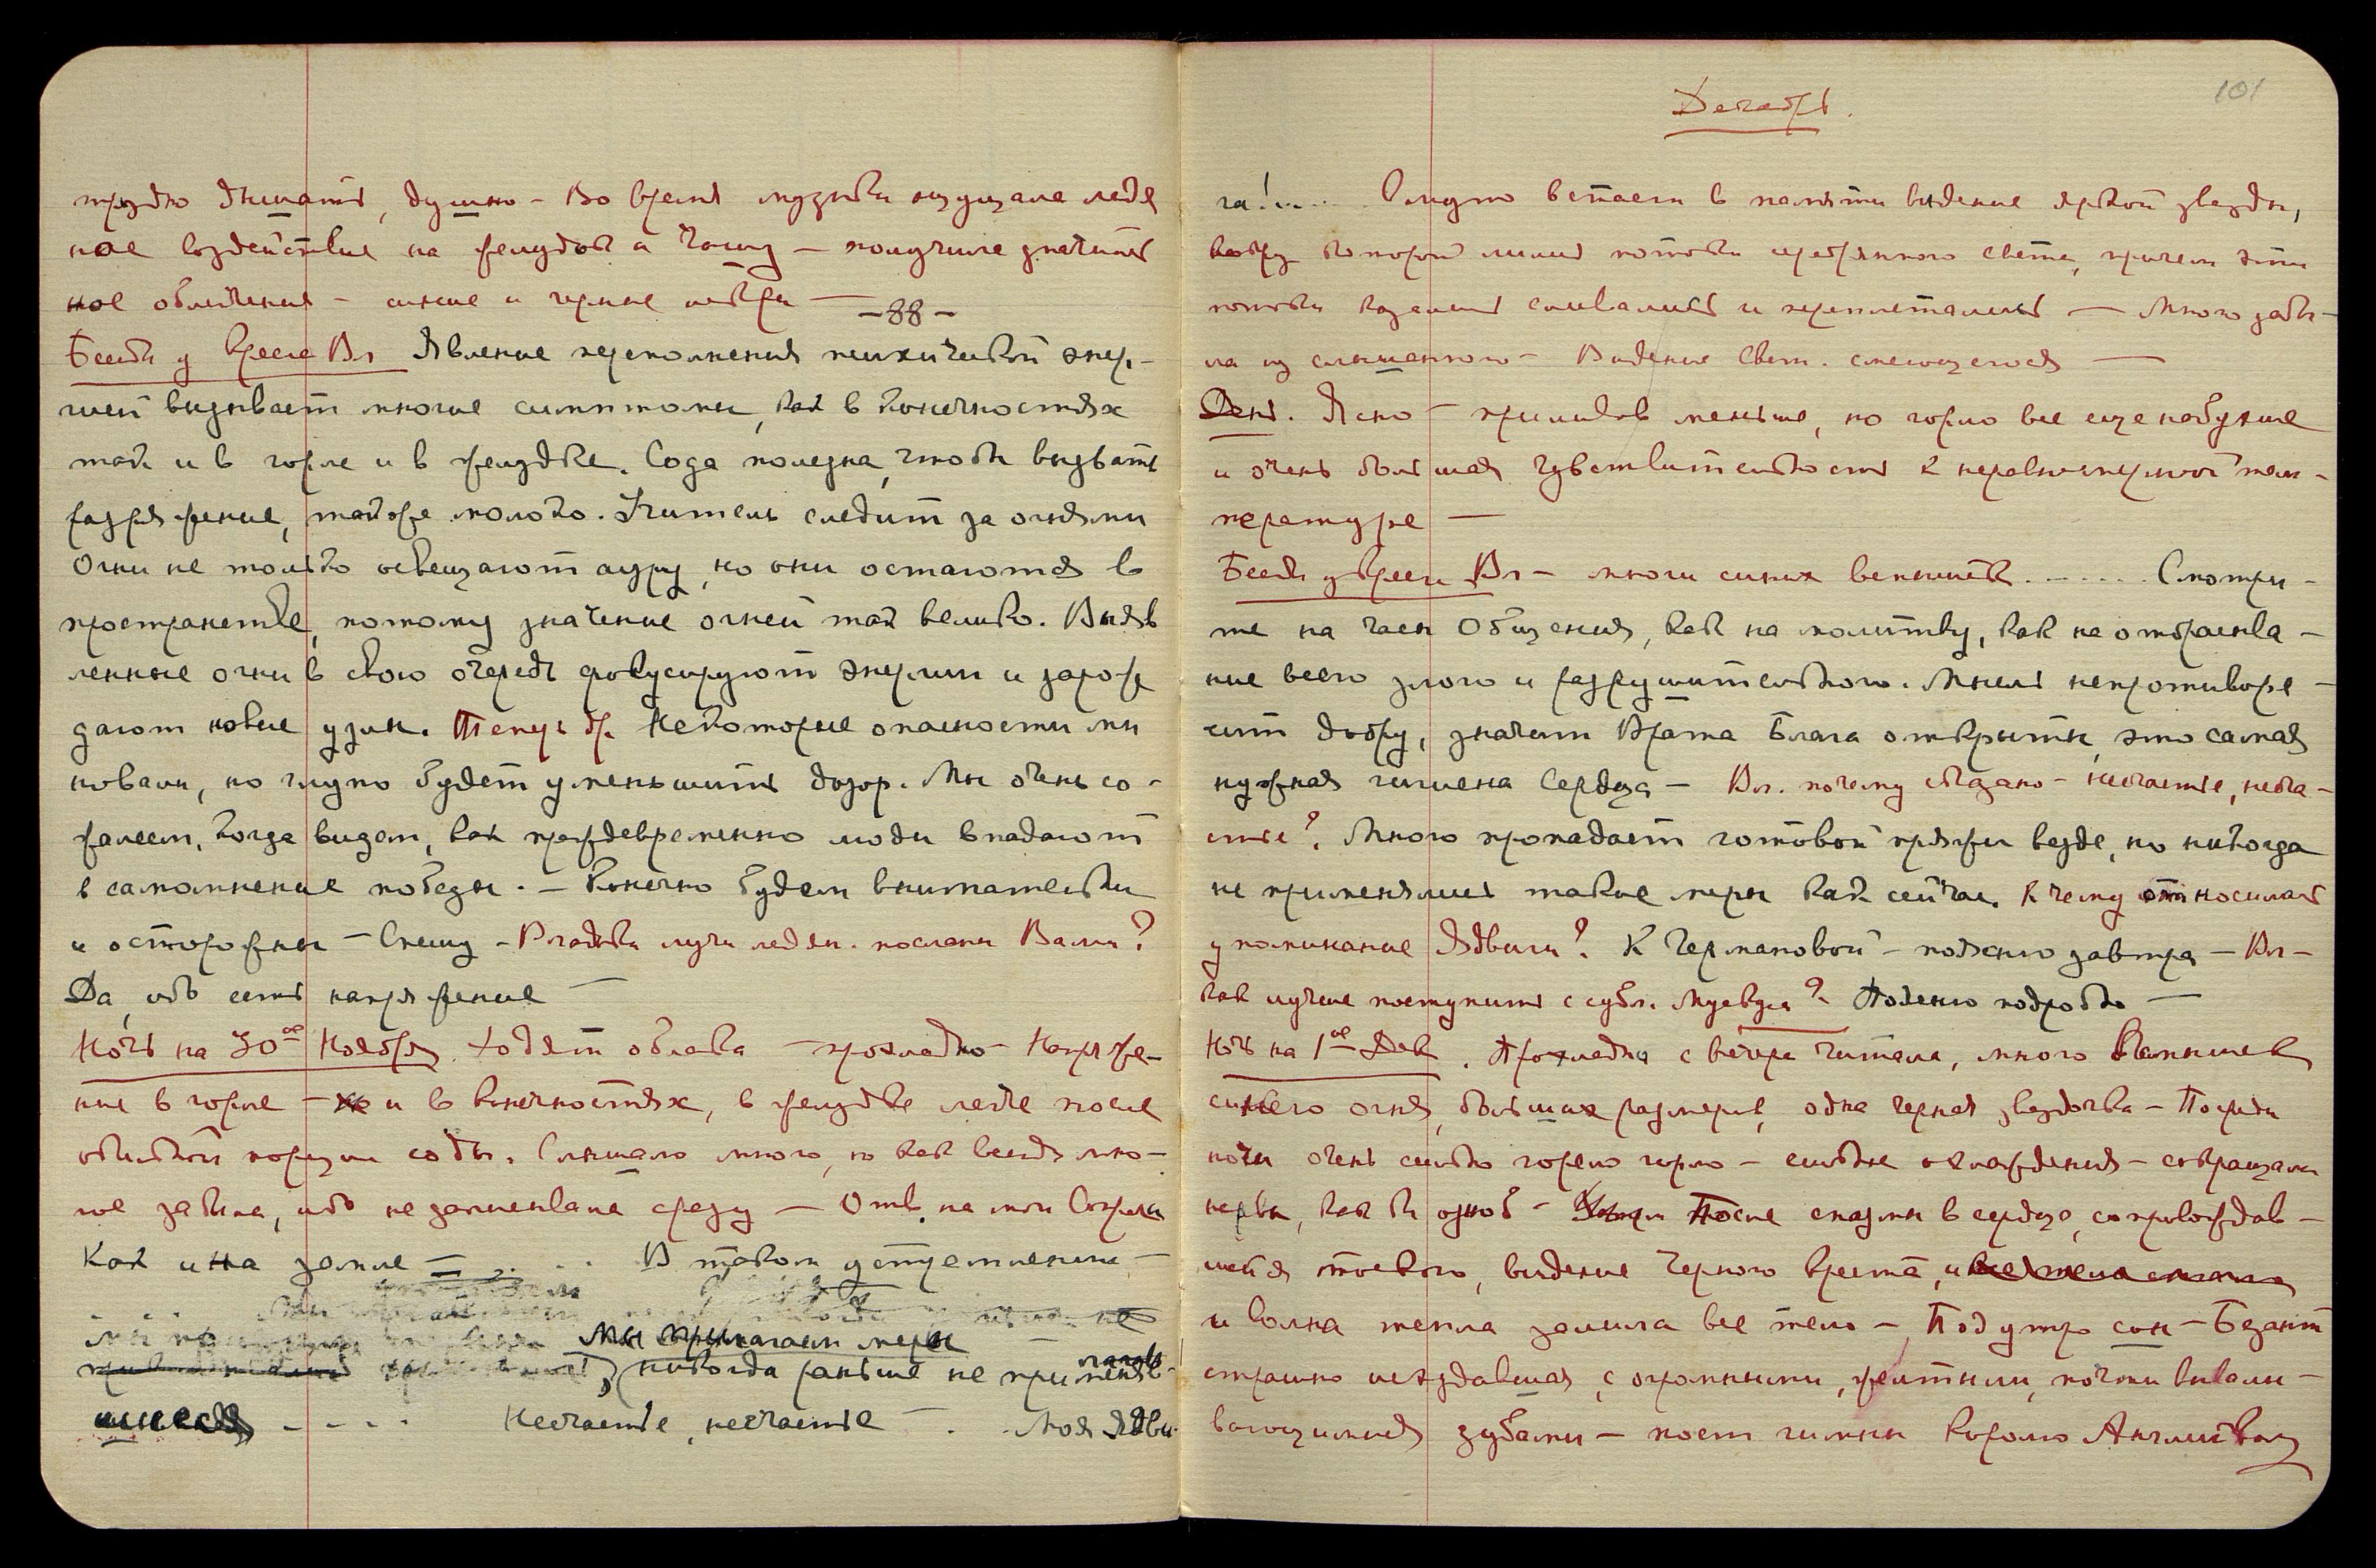 трудно дышать, душно – Во время музыки ощущала ледя
ное воздействие на желудок и Чашу – получила значитель
ное облегчение – синие и черные искры —
–88–
Беседа у кресла Вл. Явление переполнения психической энер-
гией вызывает многие симптомы, как в конечностях
так и в горле и в желудке. Сода полезна, чтобы вызвать
разряжение, также молоко. Учитель следит за огнями
Огни не только освещают ауру, но они остаются в
пространстве, потому значение огней так велико. Выяв
ленные огни в свою очередь фокусируют энергии и зарож
дают новые узлы. Некоторые опасности ми
новали, но глупо будет уменьшить дозор. Мы очень со-
жалеем, когда видем, как преждевременно люди впадают
в самомнение победы. – Конечно будем внимательны
и осторожны – Спешу – Владыка лучи ледян. посланы Вами?
Да, ибо есть напряжение —
Ночь на 30ое Ноября. Ходят облака – прохладно – Напряже-
ние в горле – и в конечностях, в желудке легче после
обильной порции соды. Слышала много, но как всегда мно-
гое забыла, ибо не записывала сразу — Отв. на мои
Как и на земле – . . . . В таком устремлении –
не
Мы прилагаем меры
никогда раньше не применяв-
шиеся – - - - Несчастье, несчастье – . . Моя Ядви-
101
Декабрь.
га!.... Смутно встает в памяти видение яркой звезды,
вокруг которой лились потоки серебряного света, причем эти
потоки казались сливались и переплетались — Много забы-
ла из слышанного – Видение Свет. смеющегося —
День. Ясно – приливов меньше, но горло все еще набухшее
и очень большая чувствительность к неравномерной тем-
пературе —
Беседа у кресла Вл – много синих вспышек ...... Смотри-
те на часы Общения, как на молитву, как на отбрасыва-
ние всего злого и разрушительного. Мысль непротиворе-
чит добру, значит Врата Блага открыты, это самая
нужная гигиена Сердца – Вл. почему сказано – несчастье, несча-
стье? Много пропадает готовой пряжи везде, но никогда
не применялись такие меры как сейчас. К чему относилось
упоминание Ядвиги? К Германовой – поясню завтра – Вл –
как лучше поступить с Поясню подробно —
Ночь на 1ое Дек. Прохладно с вечера читала, много вспышек
синего огня, больших размеров, одна черная звездочка – Посреди
ночи очень сильно горело горло – сильные охлаждения – сокращали
нервы, как бы озноб – После спазмы в сердце, сопровождав-
шейся тоскою, видение Черного креста, и
и волна тепла залила все тело – Под утро сон – Безант
страшно исхудавшая, с огромными, желтыми, почти вывали-
вающимися зубами – поет гимны Королю Английскому